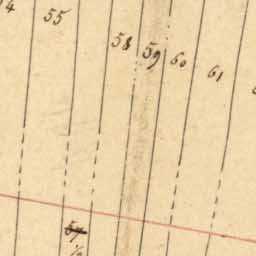 55
58 59 60 61
57